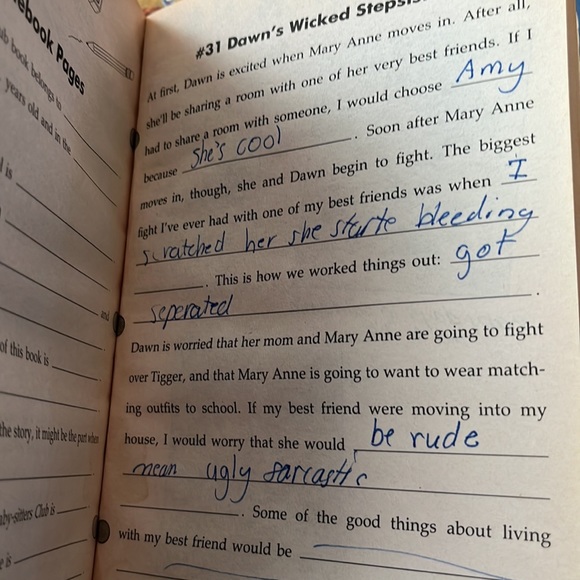 ebook Pages
book belongs to
years old and in the
l is
and
of this book is
the story, it might be the part when
aby-sitters Club is
e is
#31 Dawn's Wicked Steps
At first, Dawn is excited when Mary Anne moves in. After all,
she'll be sharing a room with one of her very best friends. If I
had to share a room with someone, I would choose Amy
because she's cool. Soon after Mary Anne
moves in, though, she and Dawn begin to fight. The biggest
fight I've ever had with one of my best friends was when I
scratched her she starte bleeding
. This is how we worked things out: got
seperated.
Dawn is worried that her mom and Mary Anne are going to fight
over Tigger, and that Mary Anne is going to want to wear match-
ing outfits to school. If my best friend were moving into my
house, I would worry that she would be rude
mean ugly sarcastic
. Some of the good things about living
with my best friend would be